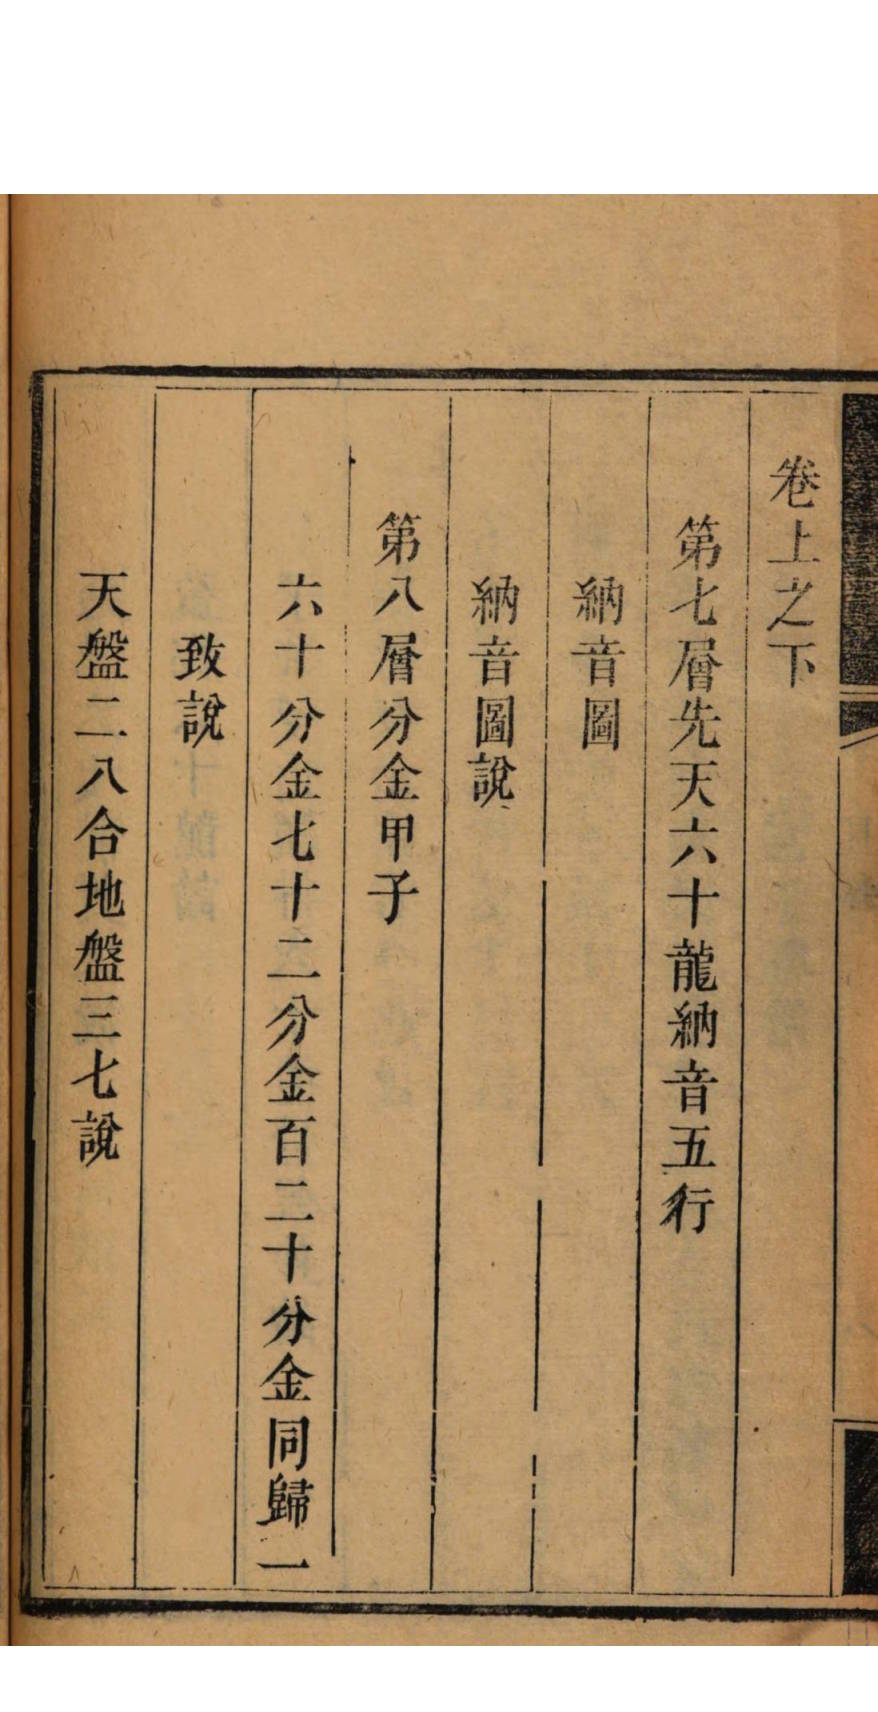 卷上之下
第七層先天六十龍納音五行
納音圖
納音圖說
第八層分金甲子
六十分金七十二分金百二十分金同歸一
致說
天盤二八合地盤三七說